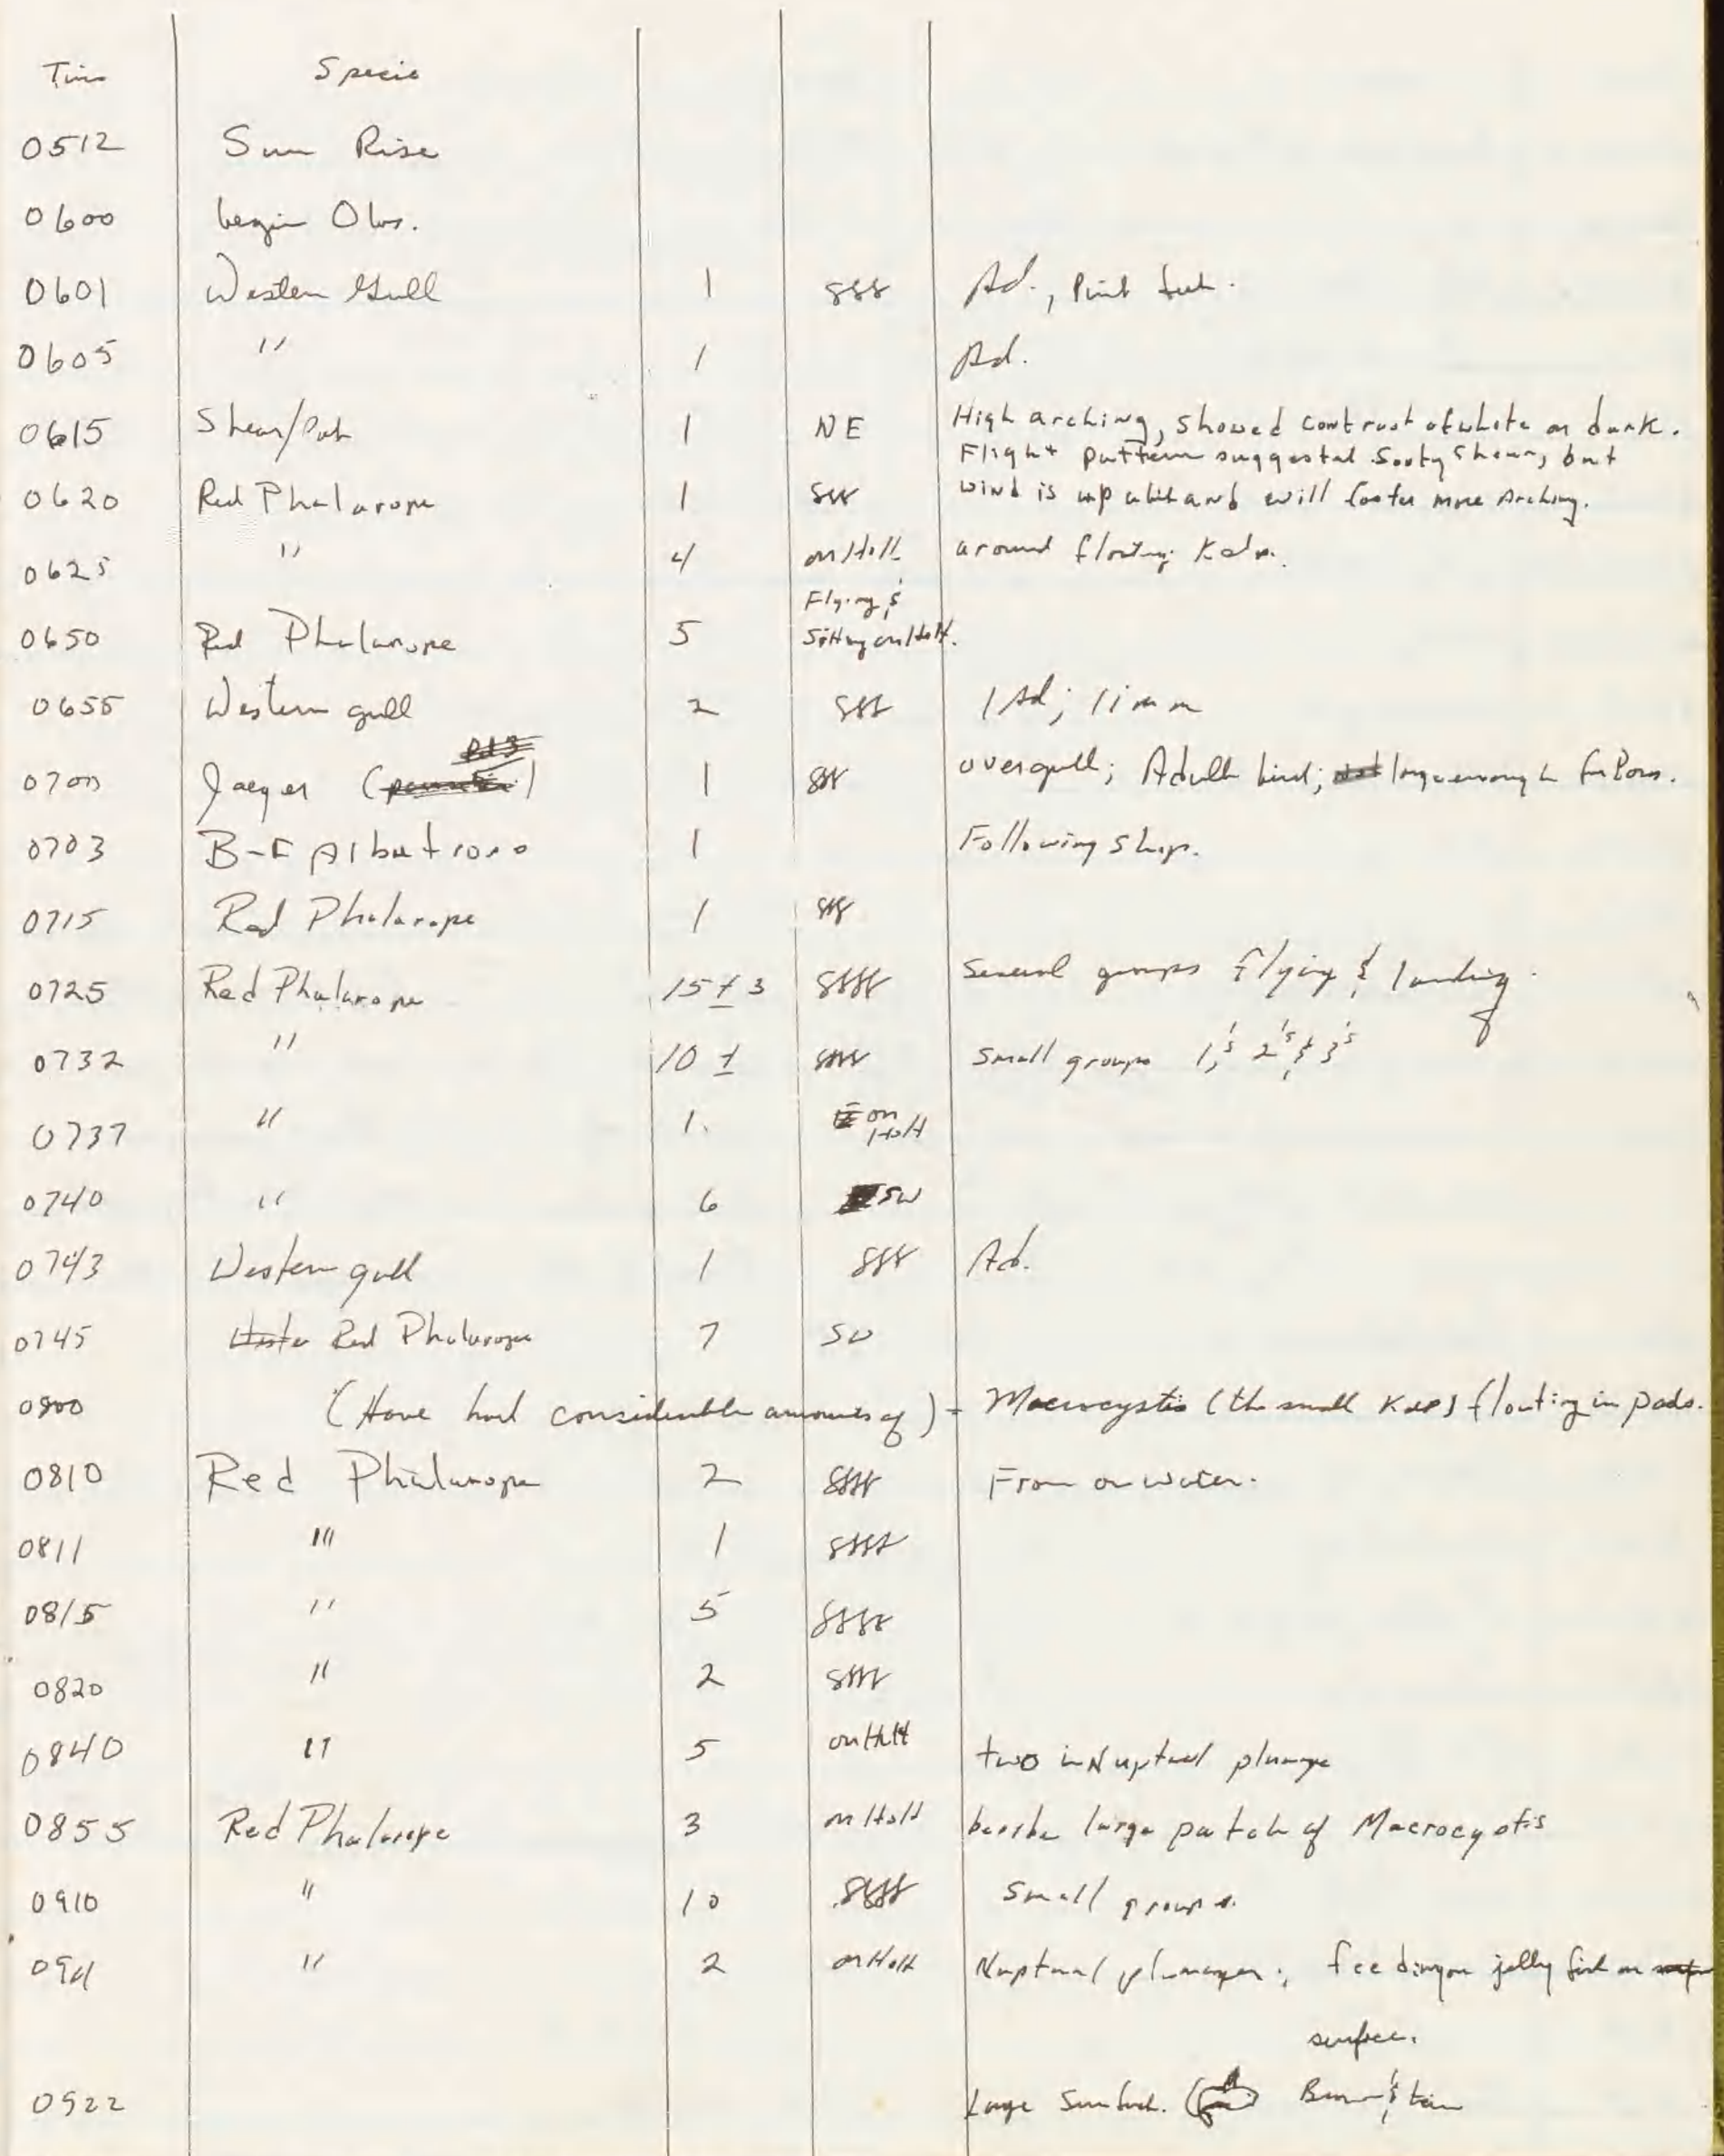 Time Specie
0512 Sun Rise
0600 begin Obs.
0601 Western Gull 1 Ad., Pink feet.
0605 " 1 Ad.
0615 Shear/Pet 1 NE High arching, showed contrast of white on dark.
Flight pattern suggestal Sooty Shear, but
0620 Red Phalarope 1 SW wind is up abit and will foster more Arching.
0625 " 4 on H2O around floating Kelp.
Flying &
0650 Red Phalarope 5 Sitting on H2O.
0655 Western gull 2 1 Ad; 1 imm
0700 Jaeger ( ) 1 over gull; Adult bird; large enough for Pom.
0703 B-F Albatross 1 Following Ship.
0715 Red Phalarope 1
0725 Red Phalarope 15 ± 3 Several groups flying & landing.
0732 " 10 ± small groups 1's, 2's & 3's
0737 " 1. on H2O
0740 " 6 SW
0743 Western gull 1 Ad.
0745 Red Phalarope 7 SW
0800 (Have had considerable amounts of) - Macrocystis (the small Kelp) floating in pads.
0810 Red Phalarope 2 From on water.
0811 " 1
0815 " 5
0820 " 2
0840 " 5 on H2O two in Nuptual plumage
0855 Red Phalarope 3 on H2O beside large patch of Macrocystis
0910 " 10 small groups.
0911 " 2 on H2O Nuptual plumages; feeding on jelly fish on
surface.
0922 Large Sunfish. ( ) Brown & tan